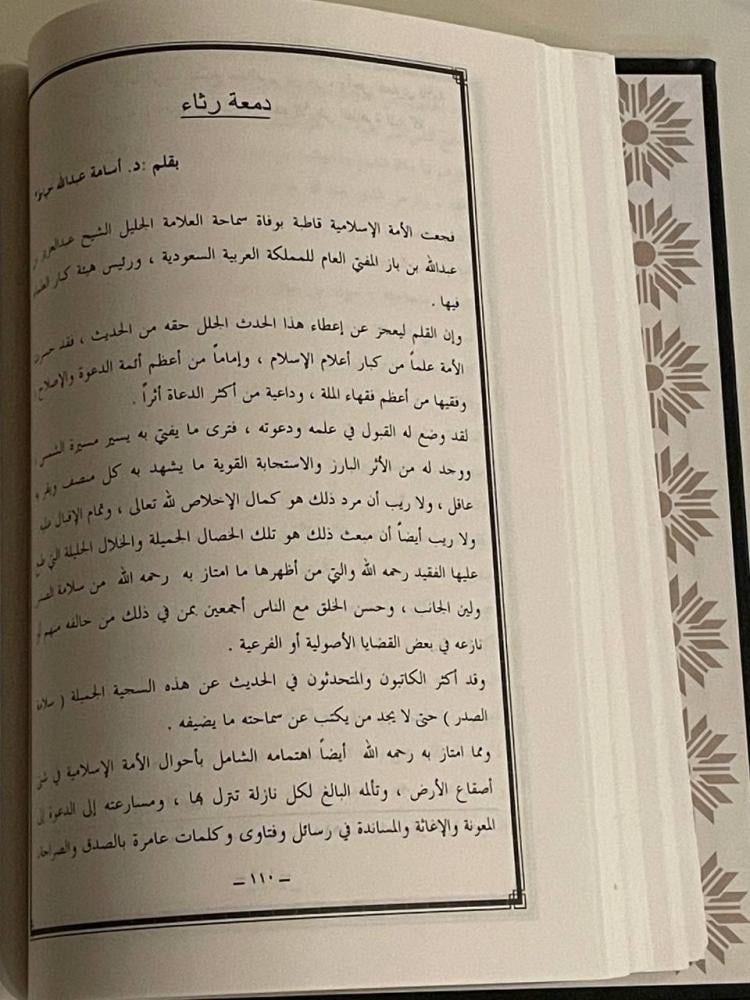 دمعة رثاء
بقلم :د. أسامة عبدالله
فجعت الأمة الإسلامية قاطبة بوفاة سماحة العلامة الجليل الشيخ عبدالعزيز
عبدالله بن باز المفتي العام للمملكة العربية السعودية ، ورئيس هيئة كبار
فيها .
وإن القلم ليعجز عن إعطاء هذا الحدث الجلل حقه من الحديث ، فقد خسرت
الأمة علماً من كبار أعلام الإسلام ، وإماماً من أعظم أئمة الدعوة والإصلاح
وفقيها من أعظم فقهاء الملة ، وداعية من أكثر الدعاة أثراً .
لقد وضع له القبول في علمه ودعوته ، فترى ما يفتي به يسير مسيرة الشمس
ووجد له من الأثر البارز والاستجابة القوية ما يشهد به كل منصف ويقر
عاقل ، ولا ريب أن مرد ذلك هو كمال الإخلاص لله تعالى ، وتمام الإقبال عليه
ولا ريب أيضاً أن مبعث ذلك هو تلك الخصال الجميلة والخلال الجليلة التي
عليها الفقيد رحمه الله والتي من أظهرها ما امتاز به رحمه الله من سلامة
ولين الجانب ، وحسن الخلق مع الناس أجمعين بمن في ذلك من خالفه منهم
نازعه في بعض القضايا الأصولية أو الفرعية .
وقد أكثر الكاتبون والمتحدثون في الحديث عن هذه السجية الجميلة ( سلامة
الصدر ) حتى لا يجد من يكتب عن سماحته ما يضيفه .
ومما امتاز به رحمه الله أيضاً اهتمامه الشامل بأحوال الأمة الإسلامية في
أصقاع الأرض ، وتألمه البالغ لكل نازلة تنزل بها ، ومسارعته إلى الدعوة إلى
المعونة والإغاثة والمساندة في رسائل وفتاوى وكلمات عامرة بالصدق والصراحة
– ١١٠ –